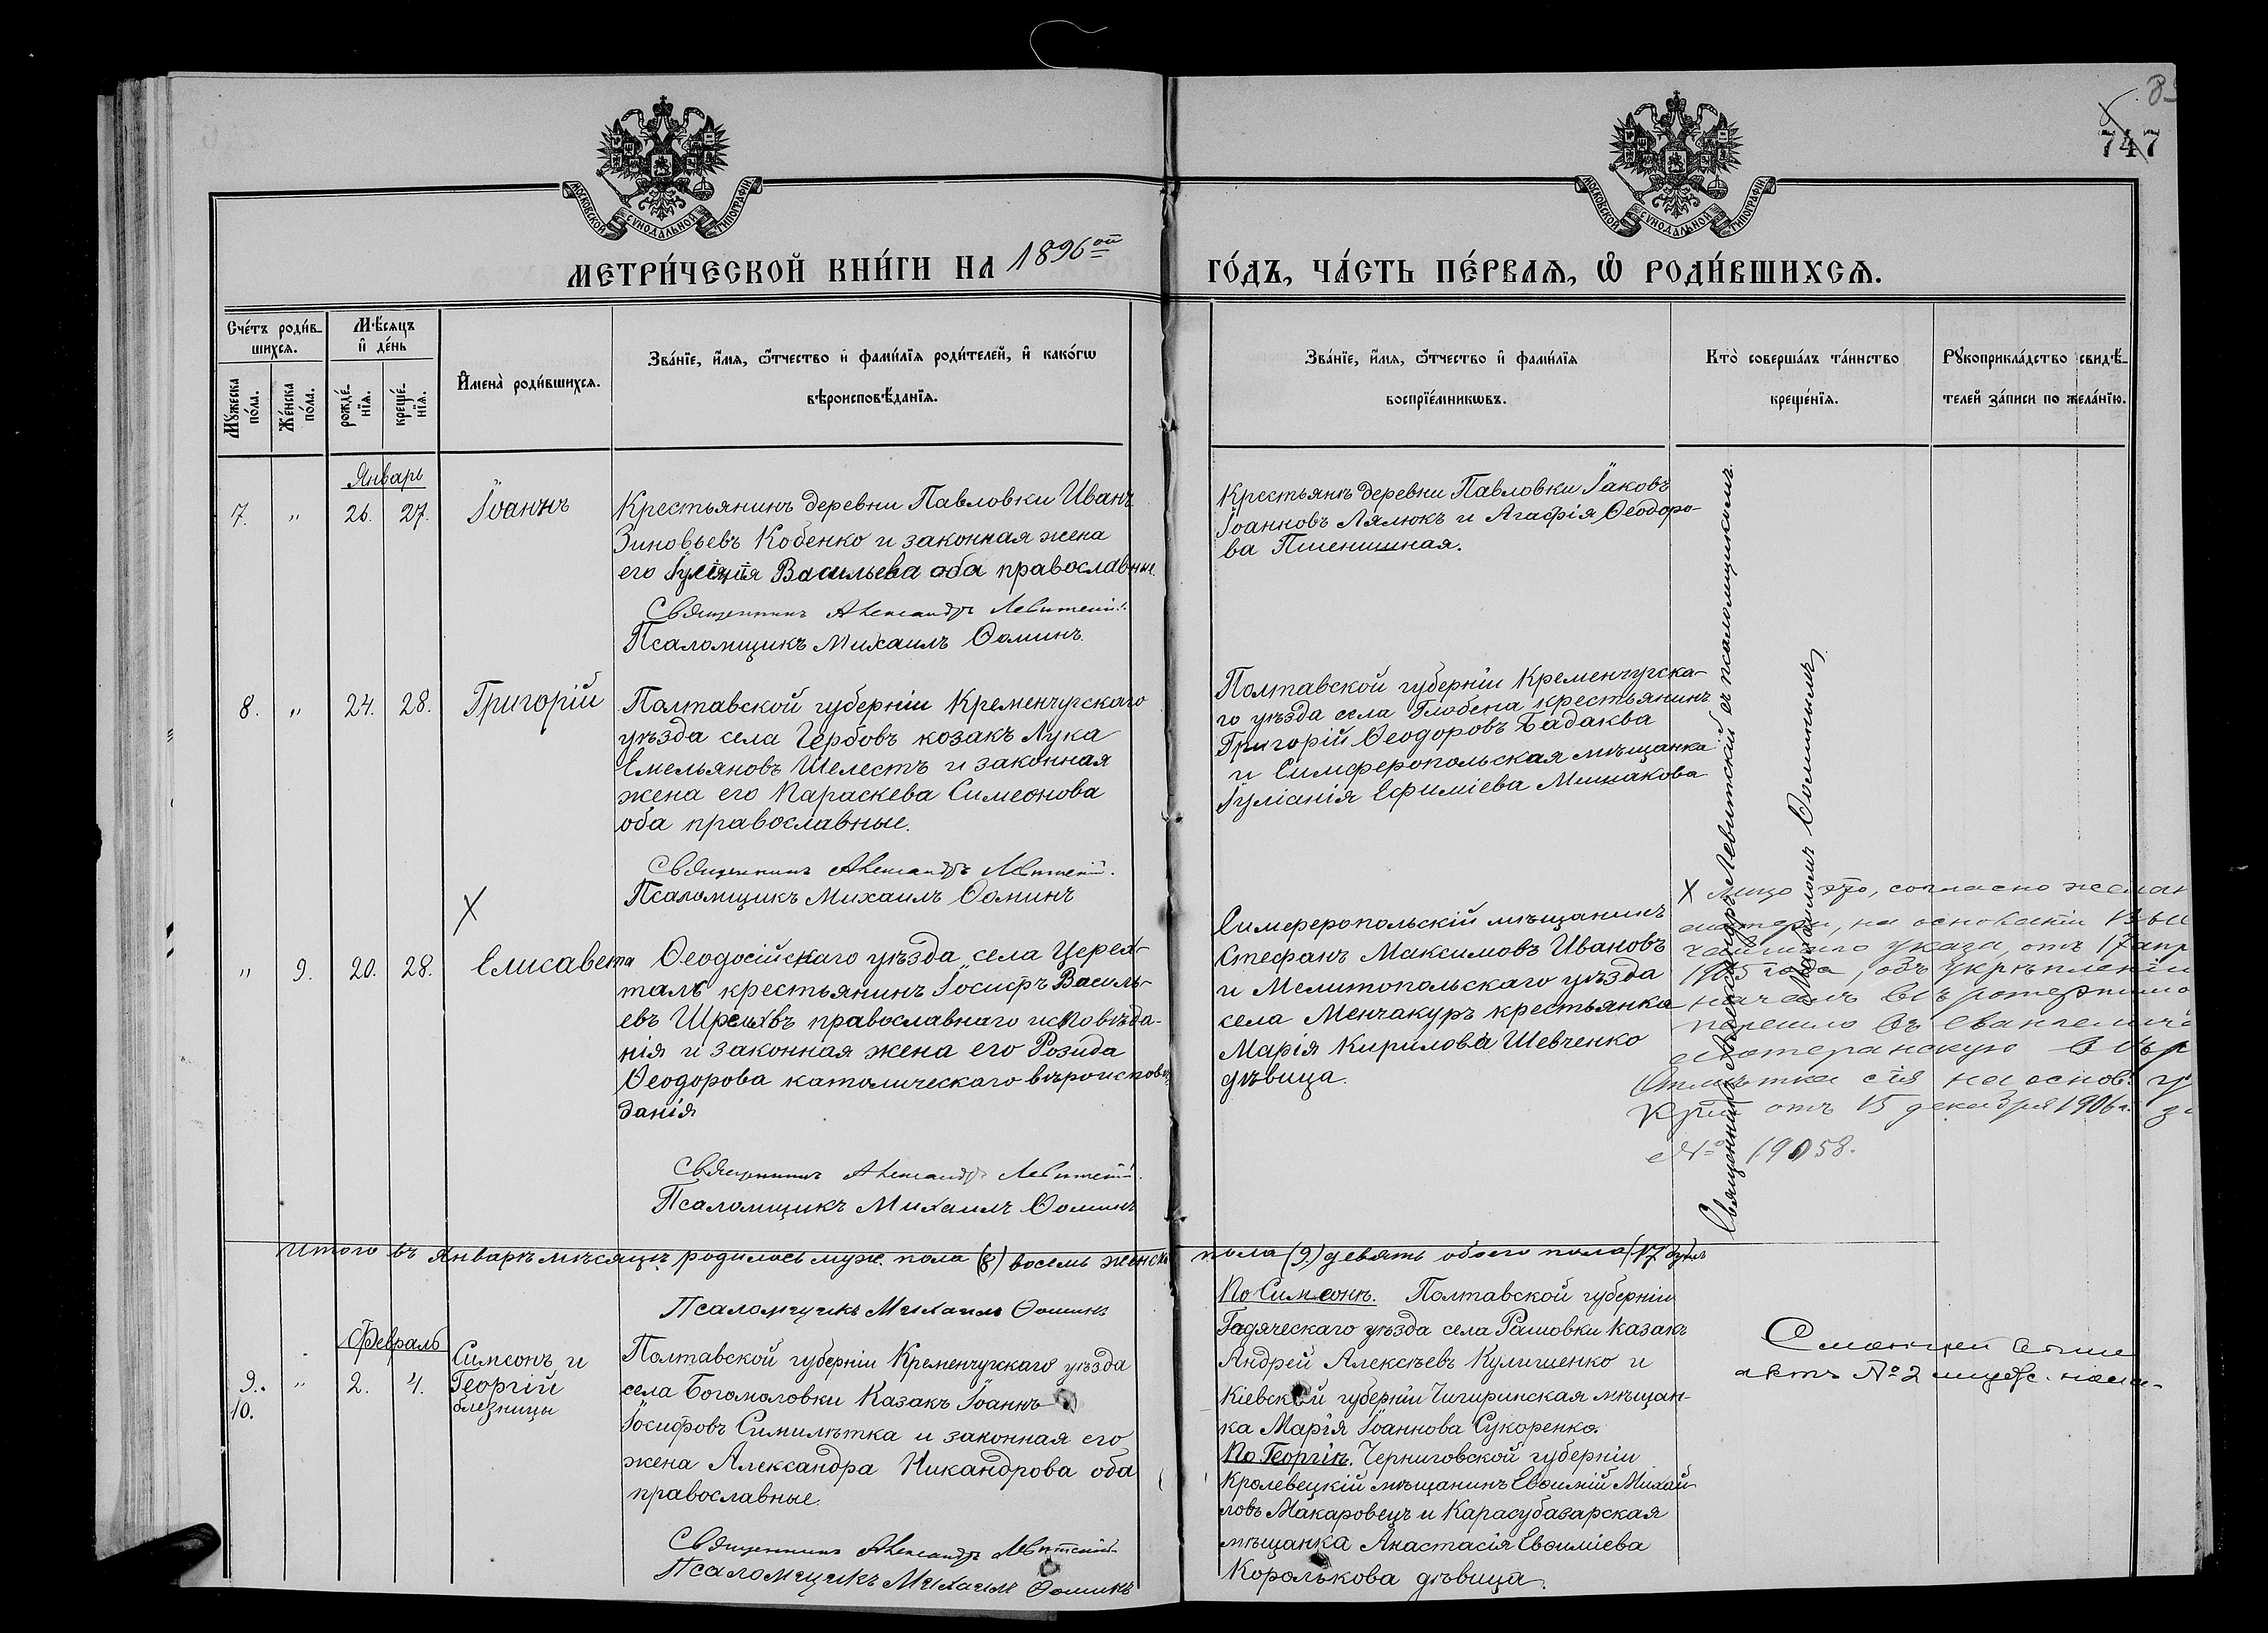 747
МОСКОВСКОЙ СѴНОДАЛЬНОЙ ТИПОГРАФІИ
МОСКОВСКОЙ СѴНОДАЛЬНОЙ ТИПОГРАФІИ
МЕТРИ́ЧЕСКОЙ КНИ́ГИ НА 1896ой ГО́ДЪ, ЧА́СТЬ ПЕ́РВАѦ, Ѽ РОДИ́ВШИХСѦ.
Сче́тъ роди́в-
шихсѧ.
Мѣ́сѧцъ
и҆ де́нь
Мꙋ́жеска
по́ла.
Же́нска
по́ла.
рожде́-
нїѧ.
креще́-
нїѧ.
И҆мена̀ роди́вшихсѧ.
Зва́нїе, и҆́мѧ, ѻ҆́тчество и҆ фами́лїѧ роди́телей, и҆ како́гѡ
вѣроисповѣ́данїѧ.
Зва́нїе, и҆́мѧ, ѻ҆́тчество и҆ фами́лїѧ
воспрїе́мникѡвъ.
Кто̀ соверша́лъ та́инство
креще́нїѧ.
Рꙋкоприкла́дство свидѣ́-
телей за́писи по жела́нїю.
Январь
7. " 26. 27. Іоаннъ
Крестьянинъ деревни Павловки Иванъ
Зиновьевъ Кобенко и законная жена
его Іуліанія Васильева оба православные.
Священникъ Александръ Левитскій.
Псаломщикъ Михаилъ Ѳоминъ.
Крестьянъ деревни Павловки Іаковъ
Іоанновъ Лялюкъ и Агафія Ѳеодоро-
ва Пшенишная.
8. " 24. 28. Григорій
Полтавской губерніи Кременчугскаго
уѣзда села Гербовъ козакъ Лука
Емельяновъ Шелестъ и законная
жена его Параскева Симеонова
оба православные.
Священникъ Александръ Левитскій.
Псаломщикъ Михаилъ Ѳоминъ
Полтавской губерніи Кременчугска-
го уѣзда села Глобена крестьянинъ
Григорій Ѳеодоровъ Бадаква
и Симферопольская мѣщанка
Іуліанія Ефиміева Минакова
X
" 9. 20. 28. Елисавета
Ѳеодосійскаго уѣзда села
крестьянинъ Іосифъ Василь-
евъ православнаго исповѣда-
нія и законная жена его Розида
Ѳеодорова католическаго вѣроисповѣ-
данія
Священникъ Александръ Левитскій.
Псаломщикъ Михаилъ Ѳоминъ
Симферопольскій мѣщанинъ
Стефанъ Максимовъ Ивановъ
и Мелитопольскаго уѣзда
села Менчакуръ крестьянка
Марія Кирилова Шевченко
дѣвица.
Священникъ Александръ Левитскій съ псаломщикомъ
Михаиломъ Ѳоминымъ
X Лицо это, согласно желан
матери, на основаніи Выс
указа, отъ 17 апр
1905 года, объ укрѣпленіи
началъ вѣротерпимо
перешло въ Евангеличе
лютеранскую вѣр
Отмѣтка сія на основ.
отъ 15 декабря 1906 г. за
№ 19058.
Итого въ Январѣ мѣсяцѣ родилось муж. пола (8) восемь женска пола (9) девять обоего пола (17 душъ
Псаломщикъ Михаилъ Ѳоминъ
Февраль
9. " 2. 4. Симеонъ и
10. Георгій
близницы
Полтавской губерніи Кременчугскаго уѣзда
села Богомоловки Казакъ Іоаннъ
Іосифовъ Симилѣтка и законная его
жена Александра Никандрова оба
православные.
Священникъ Александръ Левитскій
Псаломщикъ Михаилъ Ѳоминъ
По Симеонѣ. Полтавской губерніи
Гадяческаго уѣзда села Рашовки казакъ
Андрей Алексѣевъ Кулишенко и
Кіевской губерніи Чигиринская мѣщан-
ка Марія Іоаннова Сукоренко.
По Георгіѣ. Черниговской губерніи
Кролевецкій мѣщанинъ Евѳимій Михай-
ловъ Макаровецъ и Карасубазарская
мѣщанка Анастасія Евѳиміева
Королькова дѣвица.
актъ № 2